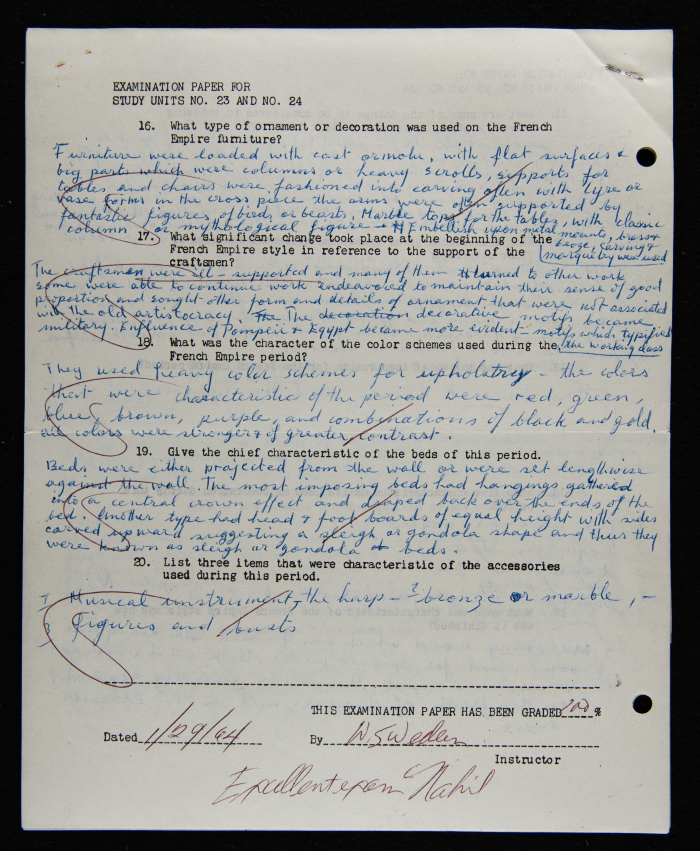 EXAMINATION PAPER FOR
STUDY UNITS NO. 23 AND NO. 24
16. What type of ornament or decoration was used on the French
Empire furniture?
Furniture were loaded with cast ormolu, with flat surfaces &
big parts which were columns or heavy scrolls, supports for
tables and chairs were fashioned into carving often with lyre or
vase forms in the cross piece the arms were often supported by
fantastic figures, of birds or beasts. Marble tops for the tables, with classic
column or mythological figure - Embellish upon metal mounts, brass &
17. What significant change took place at the beginning of the
French Empire style in reference to the support of the
craftsmen?
carving &
marquetry were used
The craftsmen were ill-supported and many of them turned to other work
some were able to continue work endeavored to maintain their sense of good
proportion and sought other form and details of ornament, that were not associated
with the old artistocracy. The The decoration decorative motifs became
military. Influence of Pompeii & Egypt became more evident - motifs which typified
the working class
18. What was the character of the color schemes used during the
French Empire period?
They used heavy color schemes for upholstry - the colors
that were characteristic of the period were red, green,
blue, brown, purple, and combinations of black and gold.
all colors were stronger & of greater contrast.
19. Give the chief characteristic of the beds of this period.
Beds were either projected from the wall or were set lengthwise
against the wall. The most imposing beds had hangings gathered
into a central crown effect and draped back over the ends of the
bed. Another type had head & foot boards of equal height with sides
carved upward suggesting a sleigh or gondola shape and thus they
were known as sleigh or gondola beds.
20. List three items that were characteristic of the accessories
used during this period.
1 Musical instrument, the harp - 2 bronze or marble, -
3 figures and busts
THIS EXAMINATION PAPER HAS BEEN GRADED 100 %
Dated 1/29/64 By W. Sweden
Instructor
Excellent exam Nahil